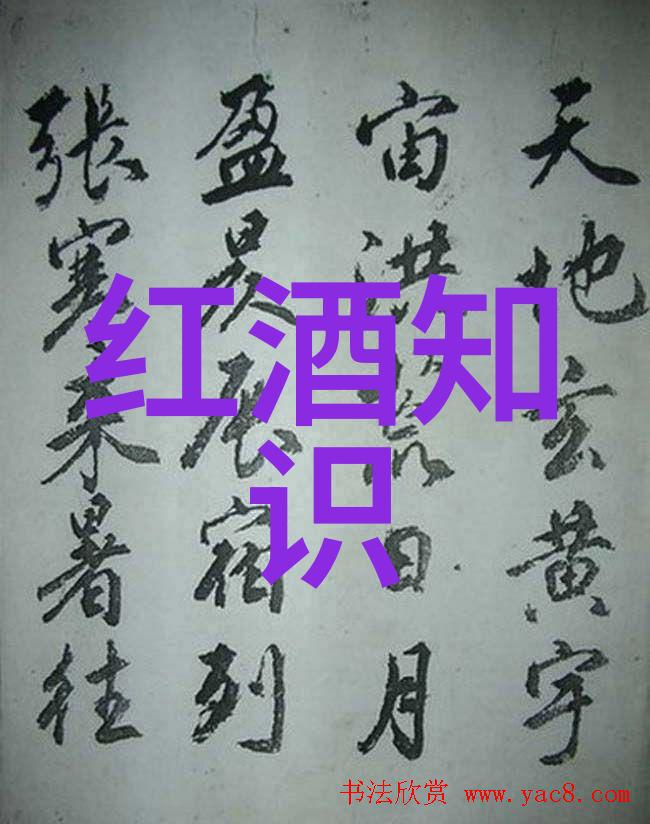 天地玄黄宇
宙洪荒日月
盈昃辰宿列
張寒来暑往
红酒知
识
书法欣赏 www.yac8.com